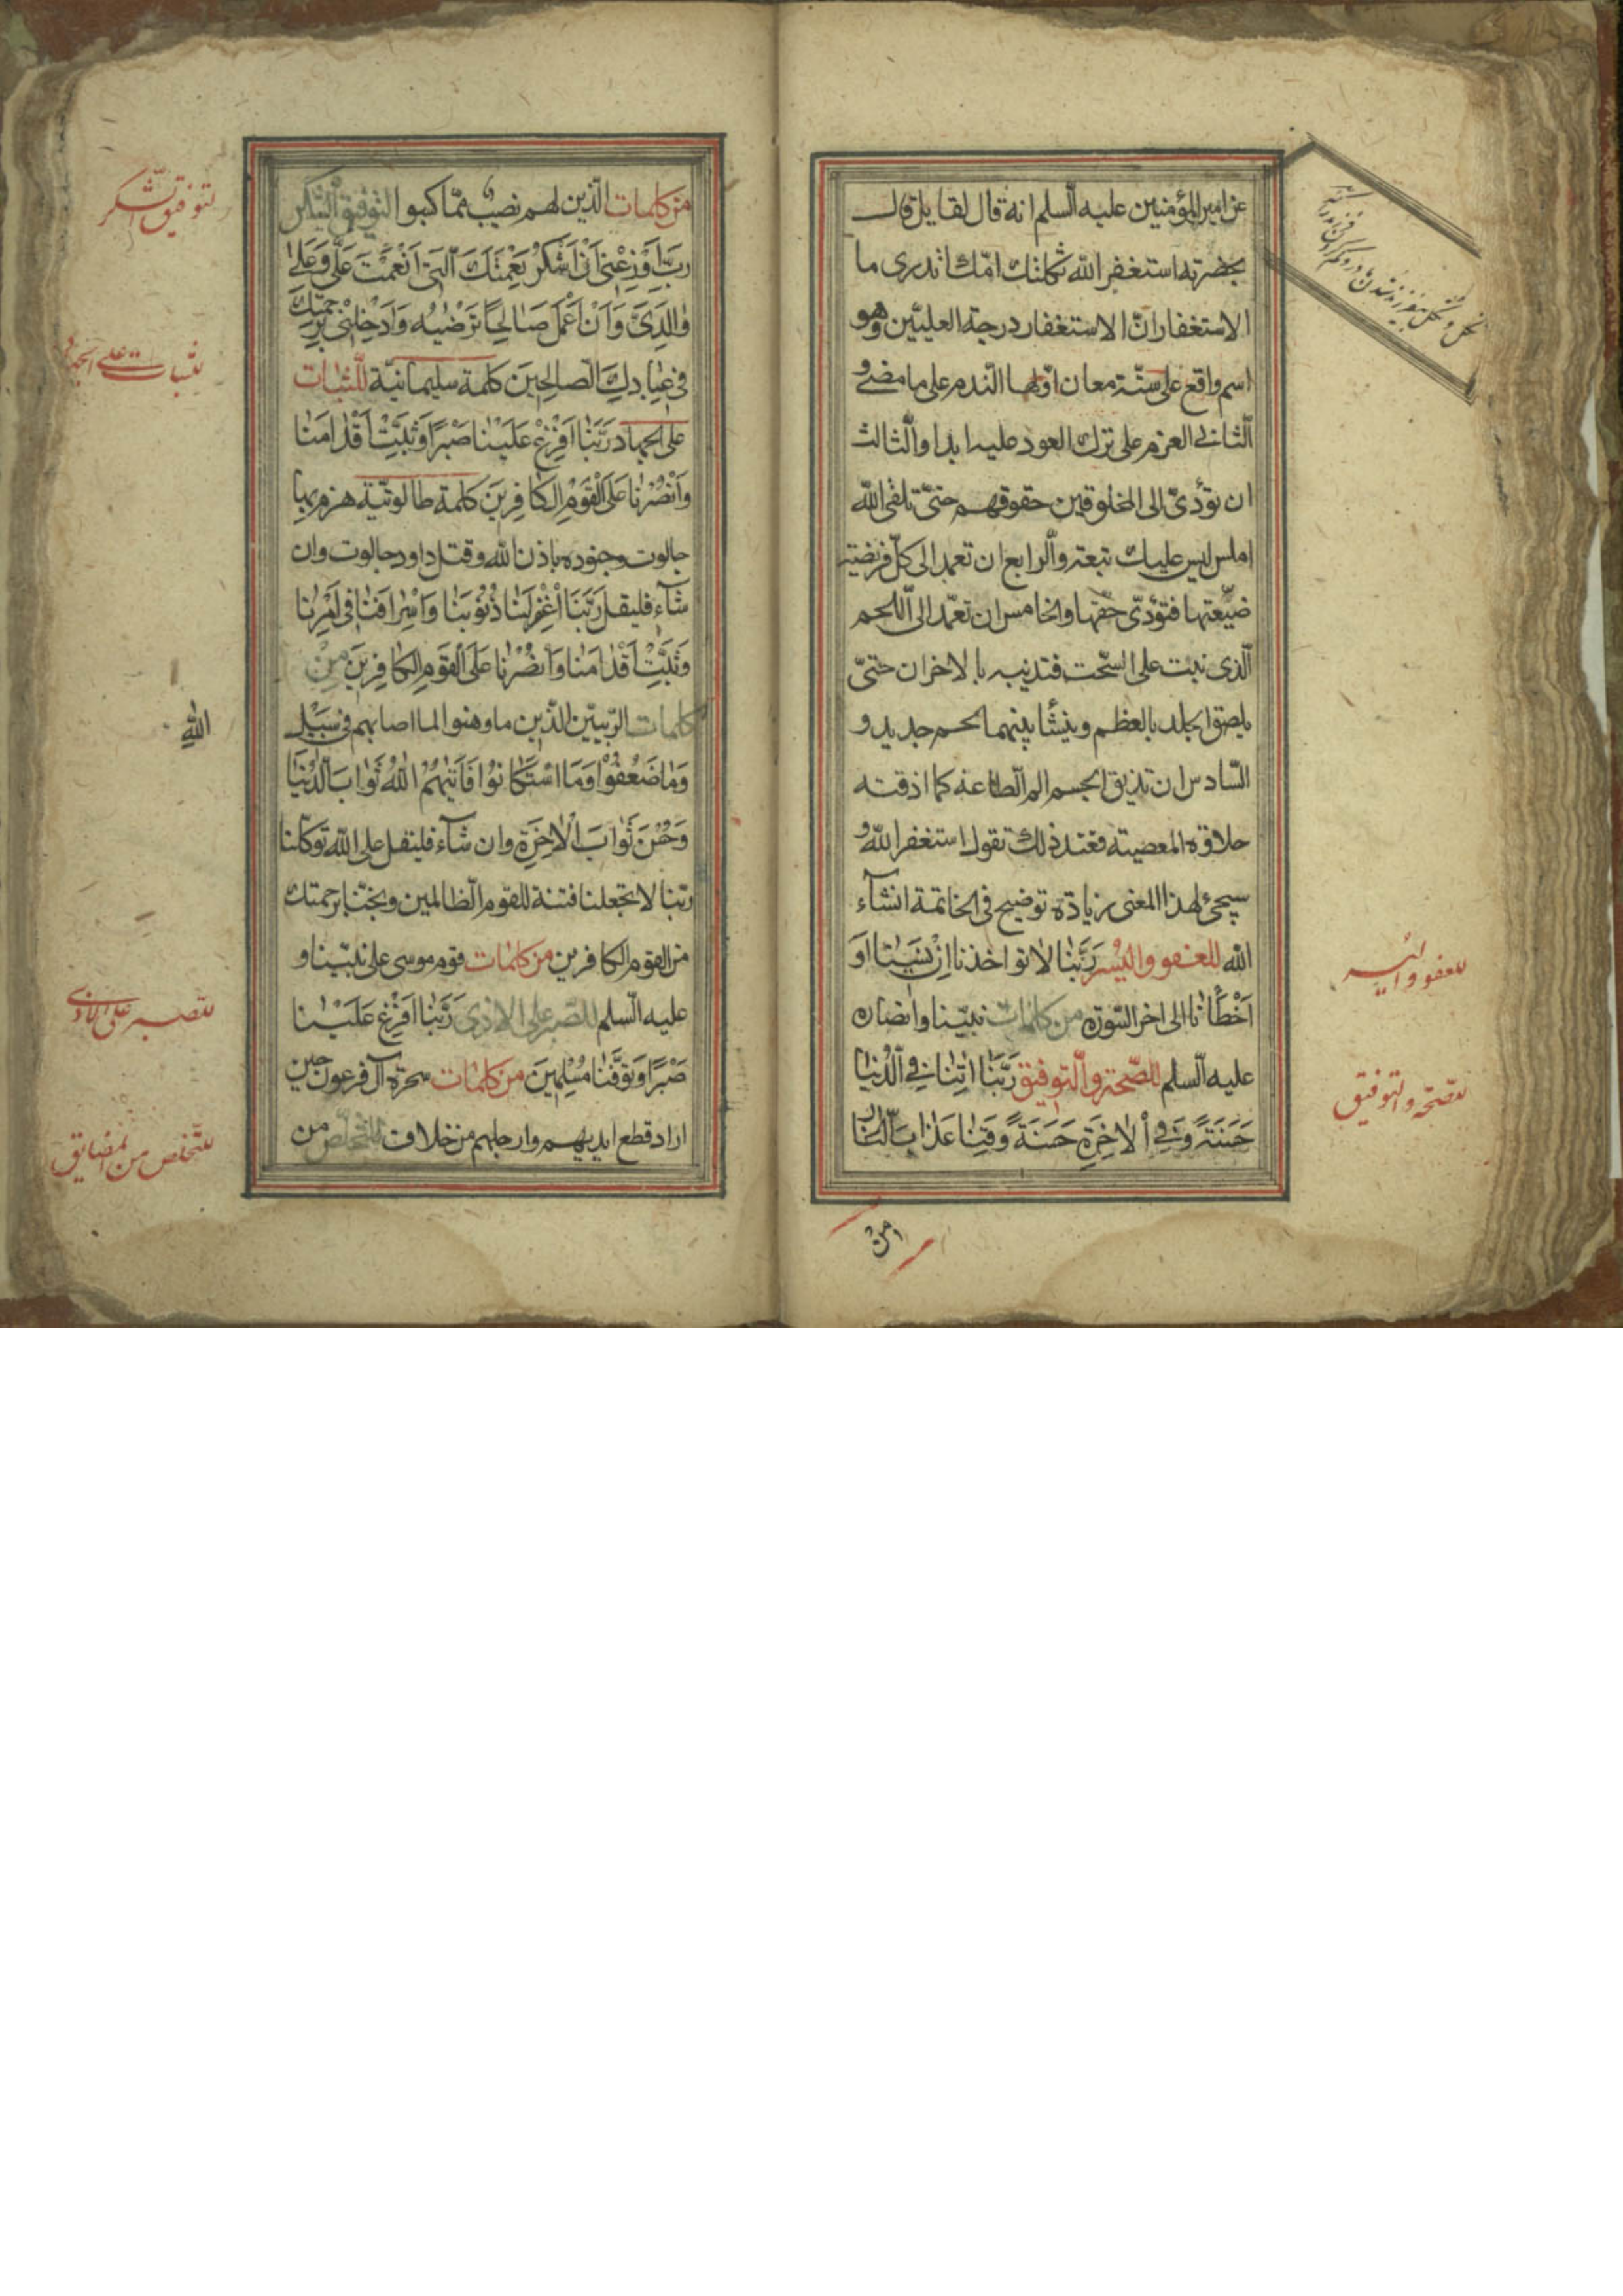 عن امير المؤمنين عليه السّلم انه قال لقايل قال
بحضرته استغفر الله ثكلتك امّك اتدرى ما
الاستغفار انّ الاستغفار درجة العليّين وهو
اسم واقع على ستّة معان اوّلها النّدم على ما مضى و
الثّانى العزم على ترك العود عليه ابدا والثّالث
ان تؤدّى الى المخلوقين حقوقهم حتّى تلقى الله
املس ليس عليك تبعة والرّابع ان تعمد الى كلّ فريضة
ضيّعتها فتؤدّى حقّها والخامس ان تعمد الى اللّحم
الّذى نبت على السّحت فتذيبه بالاخران حتّى
يلصق الجلد بالعظم وينشأ بينهما لحم جديد و
السّادس ان تذيق الجسم الم الطّاعة كما اذقته
حلاوة المعصية فعند ذلك تقول استغفر الله و
سيجئ لهذا المعنى زيادة توضيح فى الخاتمة انشآء
الله للعفو واليُسر رَبَّنَا لَا تؤاخذنا اِنْ نَسَيْنَا اَوْ
اَخْطَأْنَا الى اخر السّورة من كلمات نبيّنا وانصاره
عليه السّلم للصّحة والتّوفيق رَبَّنَا اتِنَا فِى الدُّنْيَا
حَسَنَةً وَفِى اْلاخِرَةِ حَسَنَةً وَقِنَا عَذَابَ النَّارِ
للعفو واليسر
للصّحّة والتوفيق
من
من كلمات الّذين لهم نصيب ممّا كسبوا لتوفيق الشّكر
رَبِّ اَوْزِعْنِى اَنْ اَشْكُرَ نِعْمَتَكَ الَّتِى اَنْعَمْتَ عَلَىَّ وَعَلى
وَالِدَىَّ وَاَنْ اَعْمَلَ صَالِحًا تَرْضيهُ وَاَدْخِلْنِى بِرَحْمَتِكَ
فى عِبَادِكَ الصّالِحينَ كلمة سليمانيّة للثّبات
على الجهاد رَبَّنَا اَفْرِغْ عَلَيْنَا صَبْرًا وَثَبِّتْ اَقْدَامَنَا
وَانْصُرْنَا عَلَى الْقَوْمِ الْكَافِرينَ كلمة طالوتيّة هزم بها
جالوت وجنوده باذن الله وقتل داود جالوت وان
شآء فليقل رَبَّنَا اغْفِرْ لَنَا ذُنُوبَنَا وَاِسْرَافَنَا فى اَمْرِنَا
وَثَبِّتْ اَقْدَامَنَا وَانْصُرْنَا عَلَى الْقَوْمِ الْكَافِرينَ مِنْ
كلمات الرّبّيّين الّذين ما وهنوا لما اصابهم فى سَبيل
وَمَا ضَعُفُوْا وَمَا اسْتَكَانُوْا فَاتيهُمُ اللهُ ثَوَابَ الدُّنْيَا
وَحُسْنَ ثَوَابَ الْاخِرَةِ وان شآء فليقل على الله توكّلنا
ربّنا لا تجعلنا فتنة للقوم الظّالمين ونجّنا برحمتك
من القوم الكافرين من كلمات قوم موسى على نبيّنا و
عليه السّلم للصّبر على الاذى رَبَّنَا اَفْرِغْ عَلَيْنَا
صَبْرًا وَتَوَفَّنَا مُسْلِمينَ من كلمات سحرة آل فرعون حين
اراد قطع ايديهم وارجلهم من خلاف للتخلّص من
لتوفيق الشكر
للثبات على الجهاد
الله
للصبر على الاذى
للتخلص من المضايق